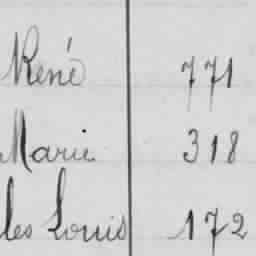 René 771
Marie 318
les Louis 172